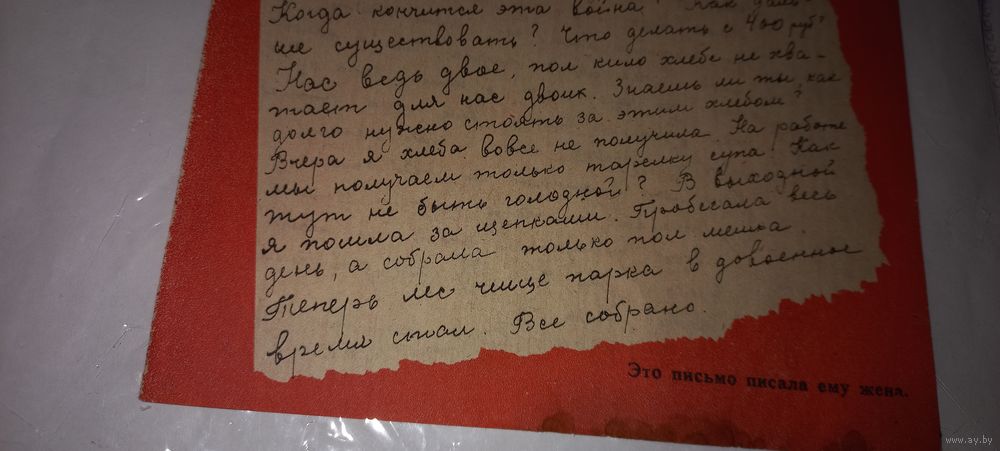 Когда кончится эта война? Как даль-
ше существовать? Что делать с 400 руб?
Нас ведь двое, пол кило хлеба не хва-
тает для нас двоих. Знаешь ли ты как
долго нужно стоять за этим хлебом?
Вчера я хлеба вовсе не получила. На работе
мы получаем только тарелку супа. Как
тут не быть голодной? В выходной
я пошла за щепками. Пробегала весь
день, а собрала только пол мешка.
Теперь лес чище парка в довоенное
время стал. Все собрано.
Это письмо писала ему жена.
www.ay.by